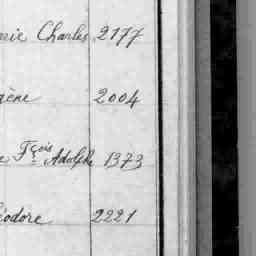 rie Charles 2177
gène 2004
e Fçois Adolphe 1373
éodore 2221